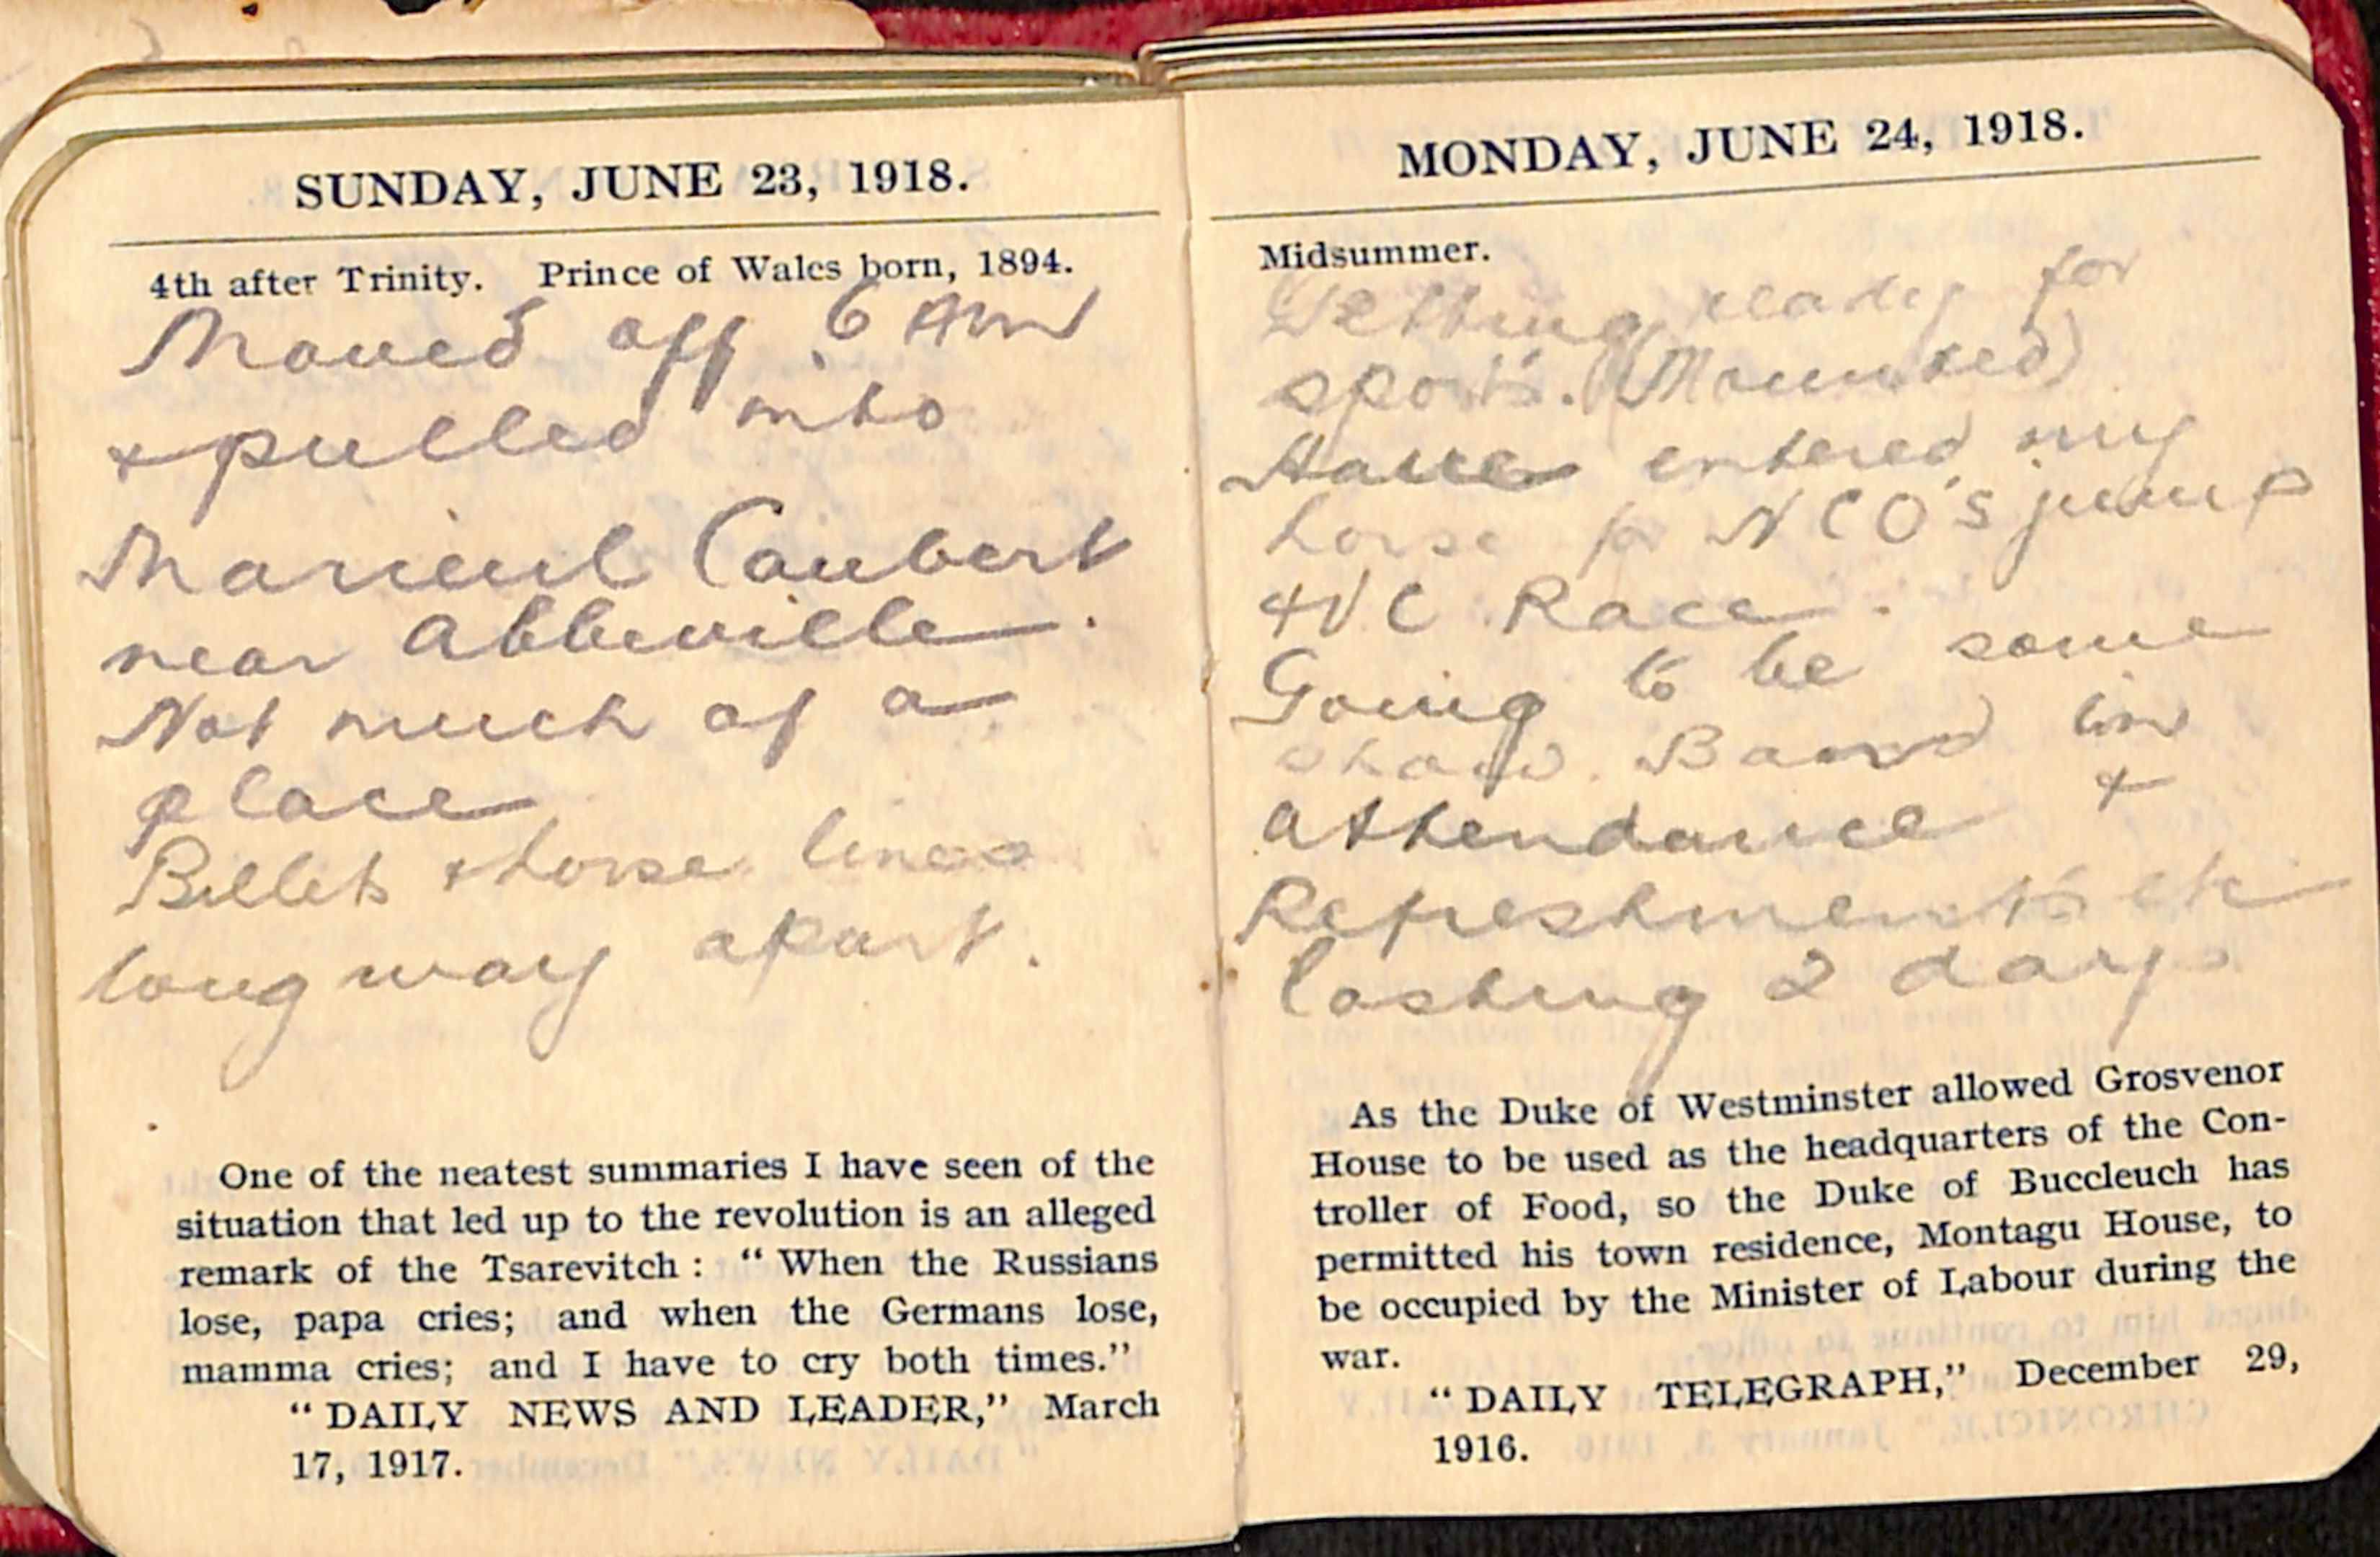 SUNDAY, JUNE 23, 1918.
4th after Trinity. Prince of Wales born, 1894.
Moved off 6 AM
+ pulled into
Marieul Caubert
near Abbeville.
Not much of a
place
Billets + horse lines
long way apart.
One of the neatest summaries I have seen of the
situation that led up to the revolution is an alleged
remark of the Tsarevitch : “ When the Russians
lose, papa cries; and when the Germans lose,
mamma cries; and I have to cry both times.”
“ DAILY NEWS AND LEADER,” March
17, 1917.
MONDAY, JUNE 24, 1918.
Midsummer.
Getting ready for
sports. (Mounted)
Have entered my
horse for NCO's jump
+ VC Race.
Going to be some
show. Band in
attendance +
Refreshments etc
lasting 2 days
As the Duke of Westminster allowed Grosvenor
House to be used as the headquarters of the Con-
troller of Food, so the Duke of Buccleuch has
permitted his town residence, Montagu House, to
be occupied by the Minister of Labour during the
war.
“ DAILY TELEGRAPH,” December 29,
1916.